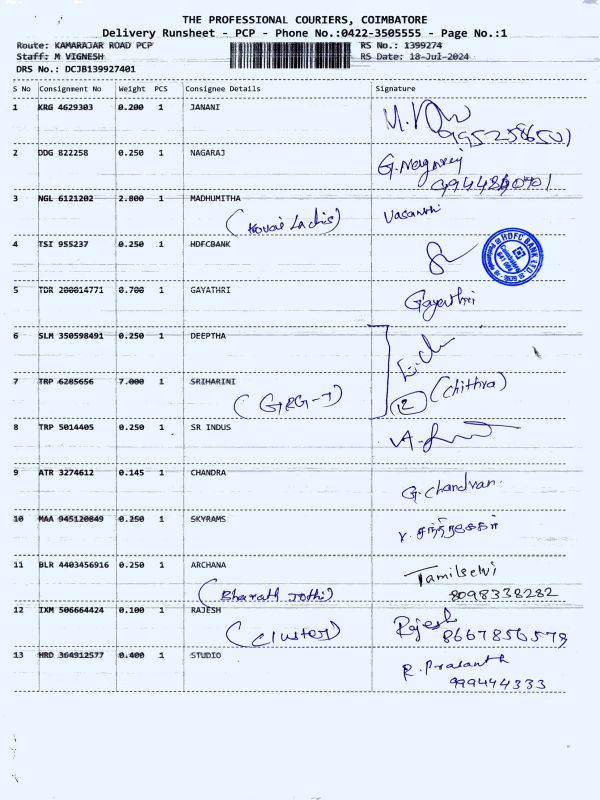 THE PROFESSIONAL COURIERS, COIMBATORE
Delivery Runsheet - PCP - Phone No.:0422-3505555 - Page No.:1
Route: KAMARAJAR ROAD PCP RS No.: 1399274
Staff: M VIGNESH RS Date: 18-Jul-2024
DRS No.: DCJB139927401
S No Consignment No Weight PCS Consignee Details Signature
1 KRG 4629303 0.200 1 JANANI
9952586501
2 DDG 822258 0.250 1 NAGARAJ G.Nagaraj
3 NGL 6121202 2.800 1 MADHUMITHA Vasanthi
(Kovai Ladis)
4 TSI 955237 0.250 1 HDFCBANK HDFC BANK LTD.
5 TDR 200014771 0.700 1 GAYATHRI Gayathri
6 SLM 350598491 0.250 1 DEEPTHA
7 TRP 6285656 7.000 1 SRIHARINI (Chithra)
(GRG-T)
8 TRP 5014405 0.250 1 SR INDUS
9 ATR 3274612 0.145 1 CHANDRA G.Chandran.
10 MAA 945120849 0.250 1 SKYRAMS
11 BLR 4403456916 0.250 1 ARCHANA Tamilselvi
(Bharath Jothi) 8098338282
12 IXM 506664424 0.100 1 RAJESH Rajesh
(Cluster) 8667856579
13 HRD 364912577 0.400 1 STUDIO R.Prasanth
999444333